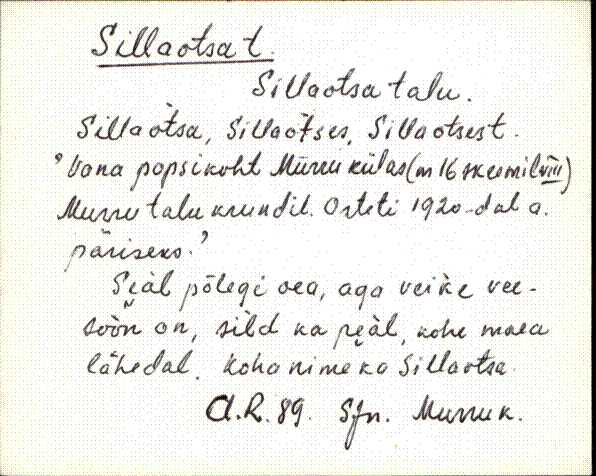 Sillaotsa t.
Sillaotsa talu.
Sillaotsa, Sillaotses, Sillaotsest.
"Vana popsikoht Murru külas (on 16 skeemil VIII)
Murru talu krundil. Osteti 1920-dal a.
päriseks."
Seäl põlegi oea, aga veike vee-
söön on, sild ka peäl, kohe maea
lähedal. Koha nime ka Sillaotsa.
A.R. 89. Sjn. Murru k.